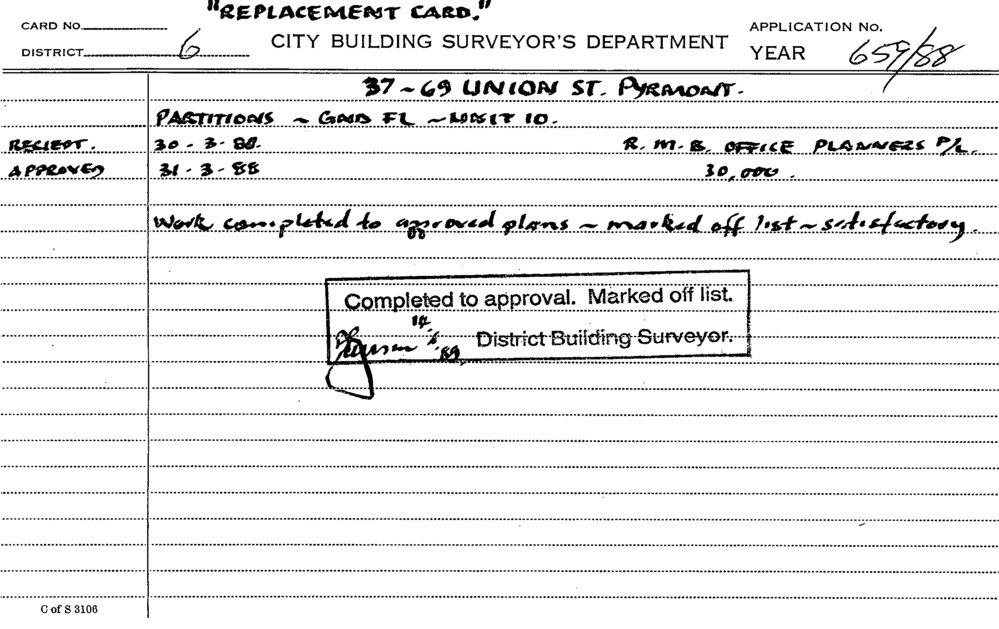 "REPLACEMENT CARD."
CARD NO.
DISTRICT 6
CITY BUILDING SURVEYOR'S DEPARTMENT
APPLICATION NO.
YEAR 659/88
37~69 UNION ST. PYRMONT.
PARTITIONS ~ GND FL ~ UNIT 10.
RECIEPT. 30-3-88. R.M.B. OFFICE PLANNERS P/L.
APPROVED 31-3-88 30,000.
Work completed to approved plans ~ marked off list ~ satisfactory.
Completed to approval. Marked off list.
District Building Surveyor.
C of S 3106